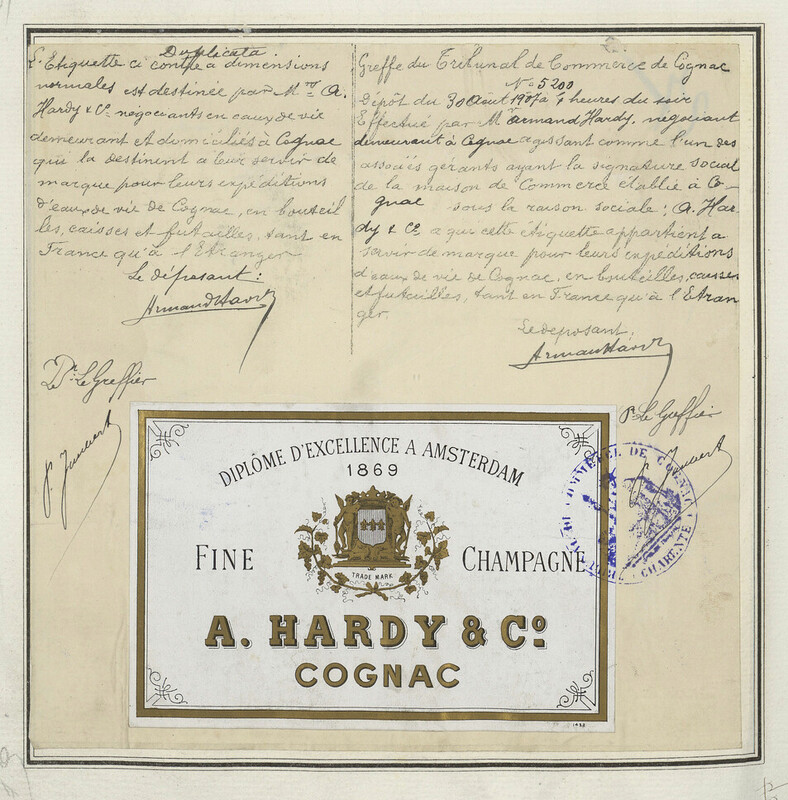 Duplicata
L'Etiquette ci contre a dimensions
normales est destinée par Mrs A.
Hardy & Cie négociants en eaux de vie
demeurant et domiciliés à Cognac
qui la destinent a leur servir de
marque pour leurs expéditions
d'eaux de vie de Cognac, en bouteil
les, caisses et futailles, tant en
France qu'à l'Etranger
Le déposant :
Armand Hardy
Pr Le Greffier
Greffe du Tribunal de Commerce de Cognac
No 5200
Dépôt du 30 Août 1907 a 4 heures du soir
Effectué par M Armand Hardy, négociant
demeurant à Cognac agissant comme l'un des
associés gérants ayant la signature social
de la maison de Commerce etablie à Co-
gnac sous la raison sociale : A. Har-
dy & Co a qui cette étiquette appartient a
servir de marque pour leurs expéditions
d'eaux de vie de Cognac, en bouteilles, caisses
et futailles, tant en France qu'à l'Etran
ger.
Le deposant.
Armand Hardy
Pr Le Greffier
DIPLÔME D'EXCELLENCE A AMSTERDAM
1869
TRADE MARK
FINE CHAMPAGNE
A. HARDY & Co
COGNAC
DE COGNAC
CHARENTE